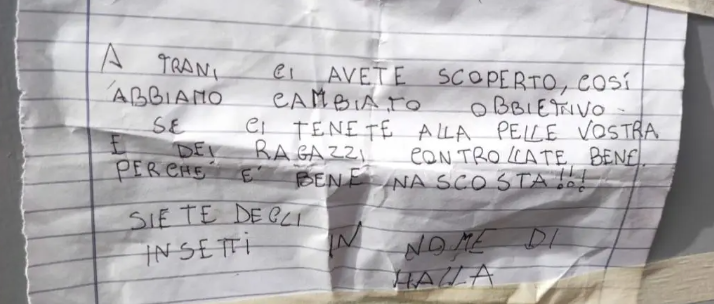 A TRANI CI AVETE SCOPERTO, COSÍ
ABBIAMO CAMBIATO OBBIETTIVO
SE CI TENETE ALLA PELLE VOSTRA
E DEI RAGAZZI CONTROLLATE BENE.
PERCHE' E' BENE NASCOSTA!!!
SIETE DEGLI
INSETTI IN NOME DI
HALLA